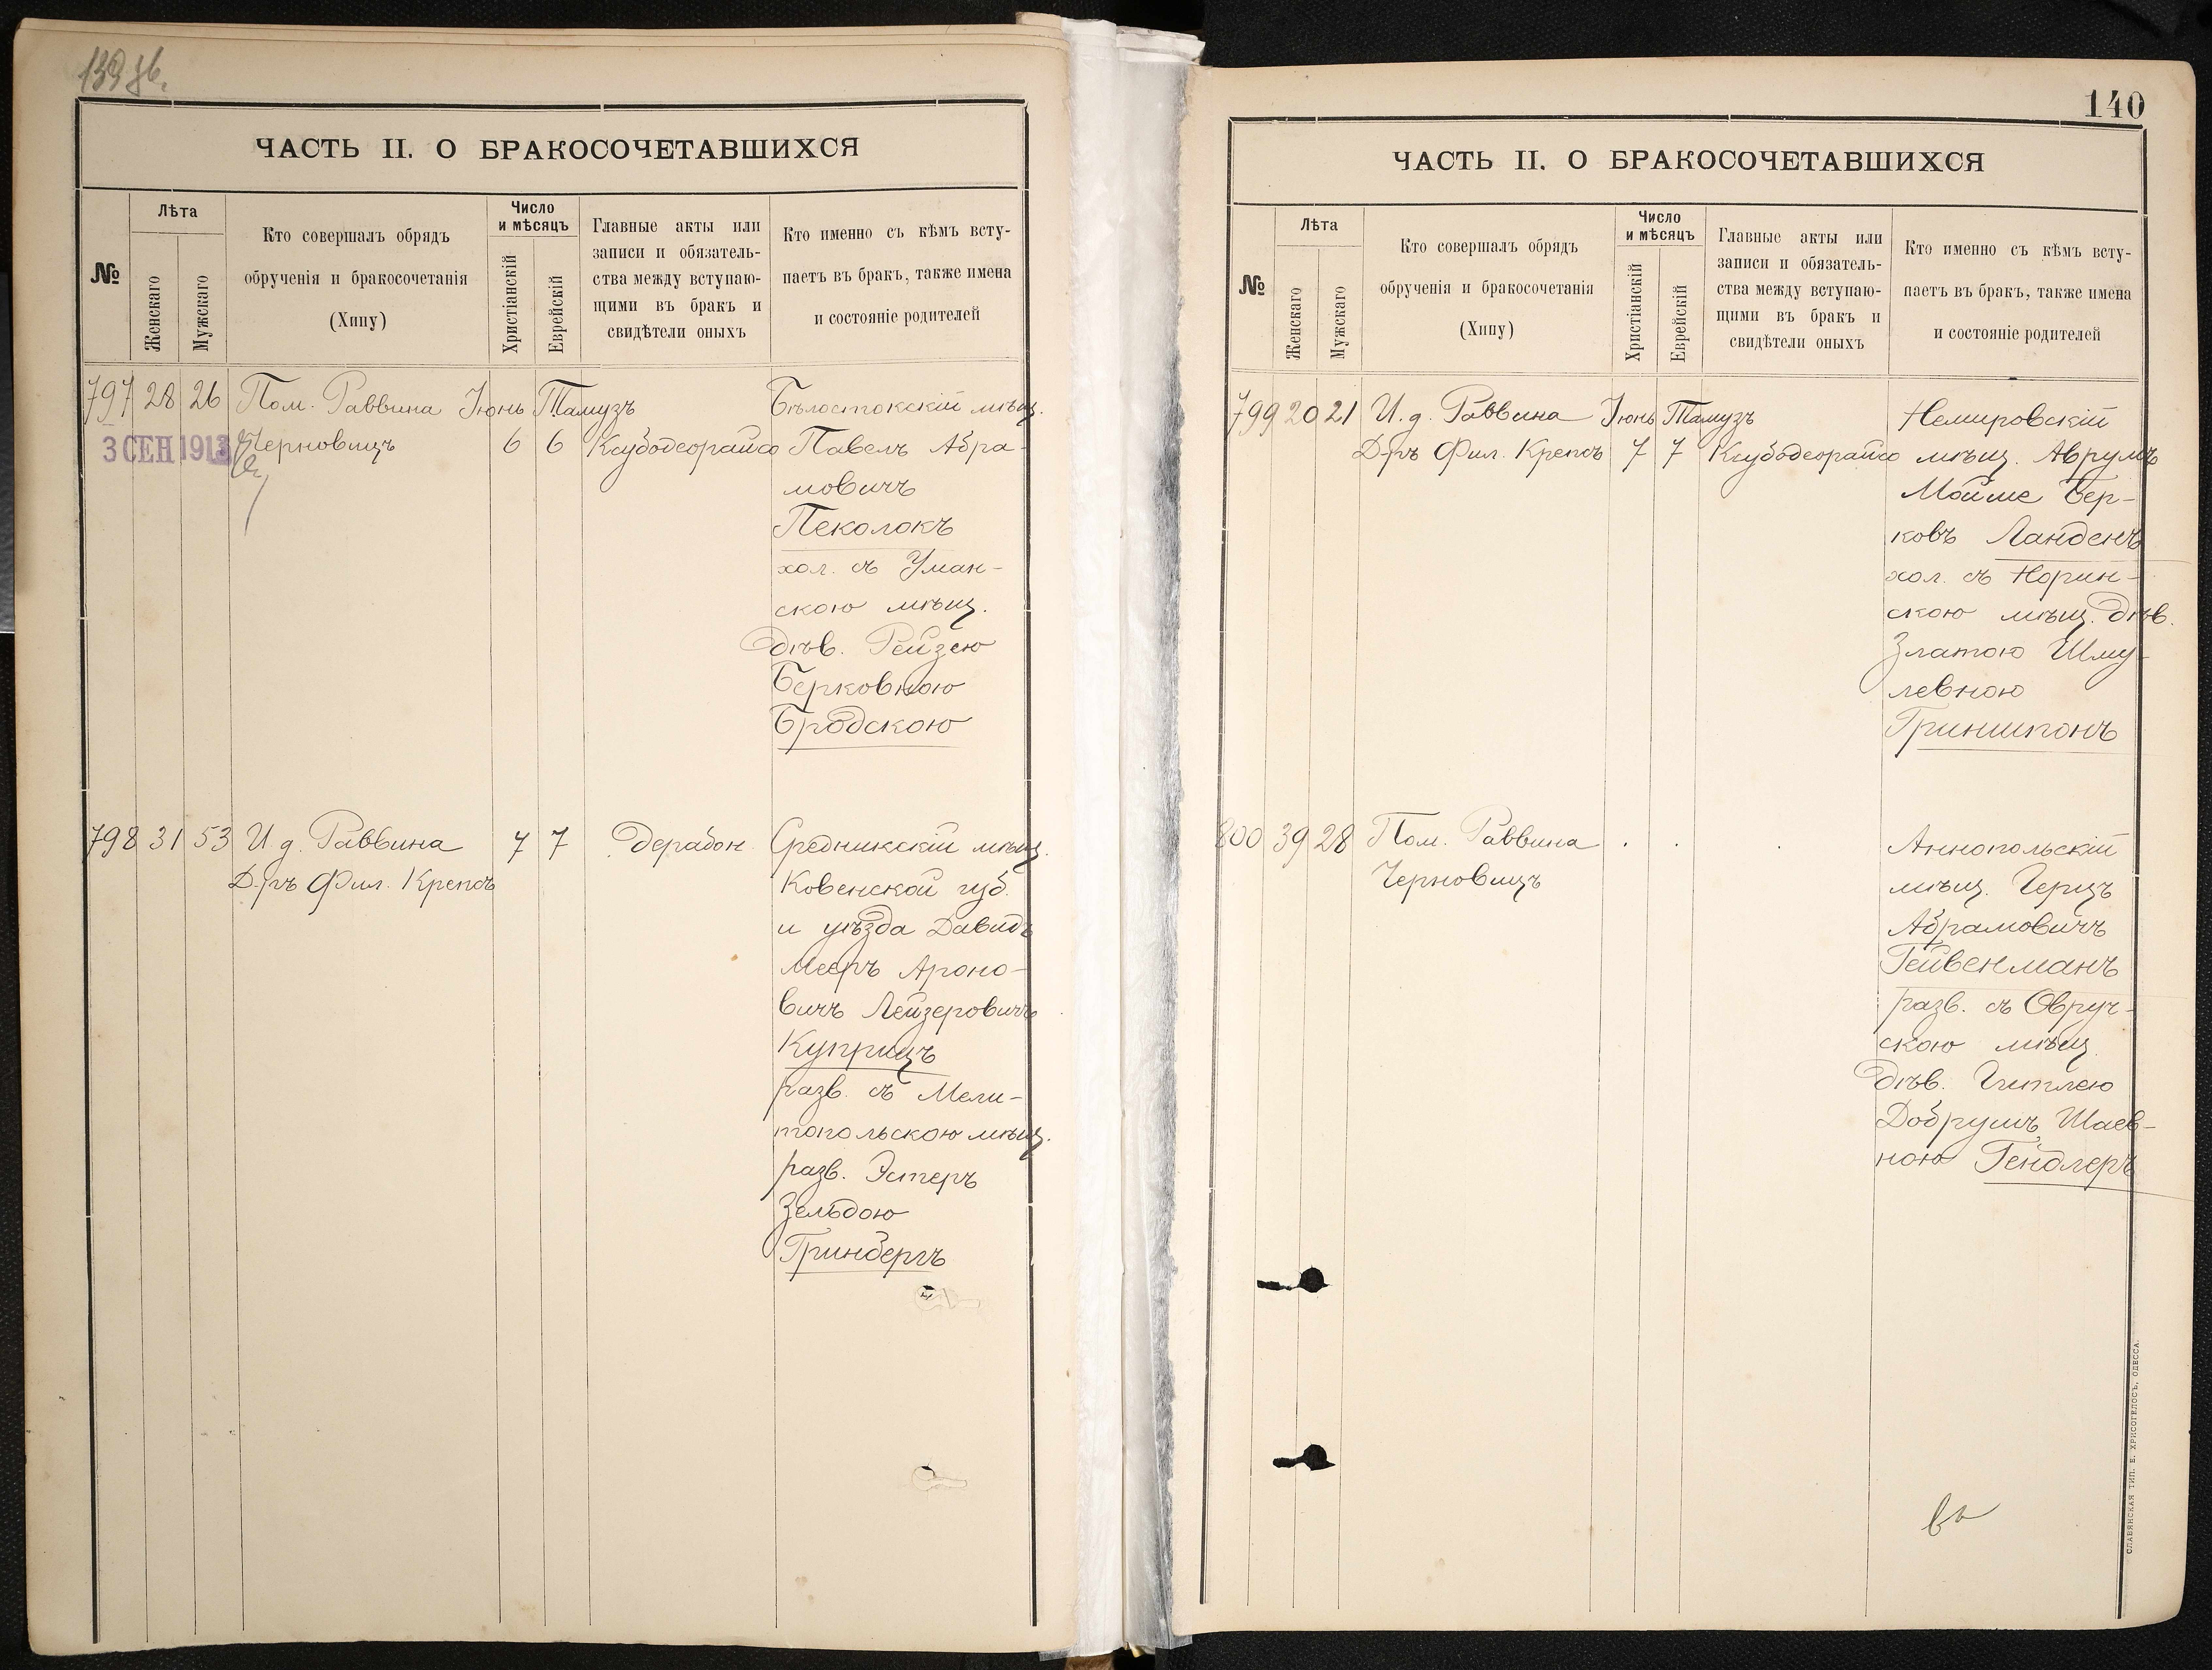 ЧАСТЬ II. О БРАКОСОЧЕТАВШИХСЯ
№
Лѣта
Женскаго
Мужскаго
Кто совершалъ обрядъ
обрученія и бракосочетанія
(Хипу)
Число
и мѣсяцъ
Христіанскій
Еврейскій
Главные акты или
записи и обязатель-
ства между вступаю-
щими въ бракъ и
свидѣтели оныхъ
Кто именно съ кѣмъ всту-
паетъ въ бракъ, также имена
и состояніе родителей
797 28 26 Пом. Раввина Іюнь Тамузъ Бѣлостокскій мѣщ.
3 СЕН 1913 Черновицъ 6 6 Ксубодеорайсо Павелъ Абра-
мовичъ
Пеколокъ
хол. съ Уман-
скою мѣщ.
дѣв. Рейзею
Берковною
Бродскою
798 31 53 И. д. Раввина 7 7 Дерабон Средникскій мѣщ.
Д-ръ Фил. Крепсъ Ковенской губ.
и уѣзда Давидъ
Мееръ Ароно-
вичъ Лейзеровичъ
Куприцъ
разв. съ Мели-
топольскою мѣщ.
разв. Эстеръ
Зельдою
Гринбергъ
140
ЧАСТЬ II. О БРАКОСОЧЕТАВШИХСЯ
№
Лѣта
Женскаго
Мужскаго
Кто совершалъ обрядъ
обрученія и бракосочетанія
(Хипу)
Число
и мѣсяцъ
Христіанскій
Еврейскій
Главные акты или
записи и обязатель-
ства между вступаю-
щими въ бракъ и
свидѣтели оныхъ
Кто именно съ кѣмъ всту-
паетъ въ бракъ, также имена
и состояніе родителей
799 20 21 И. д. Раввина Іюнь Тамузъ Немировскій
Д-ръ Фил. Крепсъ 7 7 Ксубодеорайсо мѣщ. Аврумъ
Мойше Бер-
ковъ Ланденъ
хол. съ Норин-
скою мѣщ. дѣв.
Златою Шму-
левною
Гриншпонъ
800 39 28 Пом. Раввина . . . Аннопольскій
Черновицъ мѣщ. Герцъ
Абрамовичъ
Гейвенманъ
разв. съ Овруч-
скою мѣщ.
дѣв. Гитлею
Добрумъ Шаев-
ною Гендлеръ
СЛАВЯНСКАЯ ТИП. Е. ХРИСОГЕЛОСЪ, ОДЕССА.